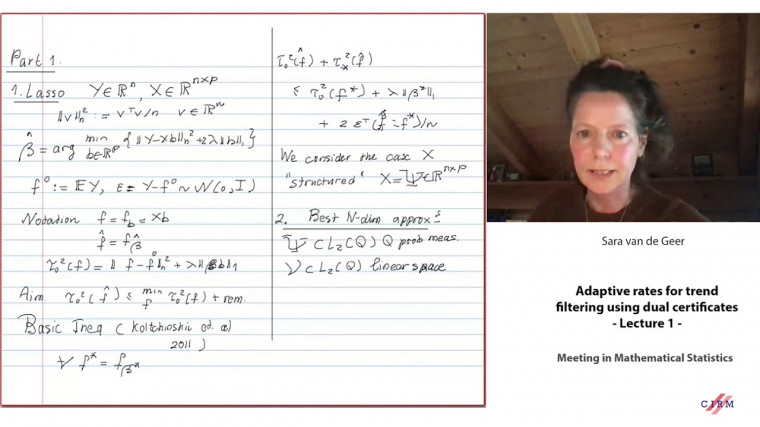 Part 1.
1. Lasso Y∈ℝⁿ, X∈ℝⁿˣᵖ
‖v‖ₙ² := vᵀv/n v∈ℝⁿ
β̂ = arg min b∈ℝᵖ {‖Y-Xb‖ₙ²+2λ‖b‖₁}
f⁰ := 𝔼Y, ε = Y-f⁰ ~ N(0, I)
Notation f = f_b = Xb
f̂ = f_β̂
τ₀²(f) = ‖f-f⁰‖ₙ² + λ‖b‖₁
Aim τ₀²(f̂) ≤ min f τ₀²(f) + rem.
Basic Ineq (
2011 )
∀ f* = f_β*
τ₀²(f̂) + τ*²(f̂)
≤ τ₀²(f*) + λ‖β*‖₁
+ 2 εᵀ(f̂ - f*)/n
We consider the case X
"structured" X=Ψ∈ℝⁿˣᵖ
2. Best N-dim approx:
Ψ ⊂ L₂(Q) Q prob meas.
V ⊂ L₂(Q) linear space
Sara van de Geer
Adaptive rates for trend
filtering using dual certificates
- Lecture 1 -
Meeting in Mathematical Statistics
CIRM